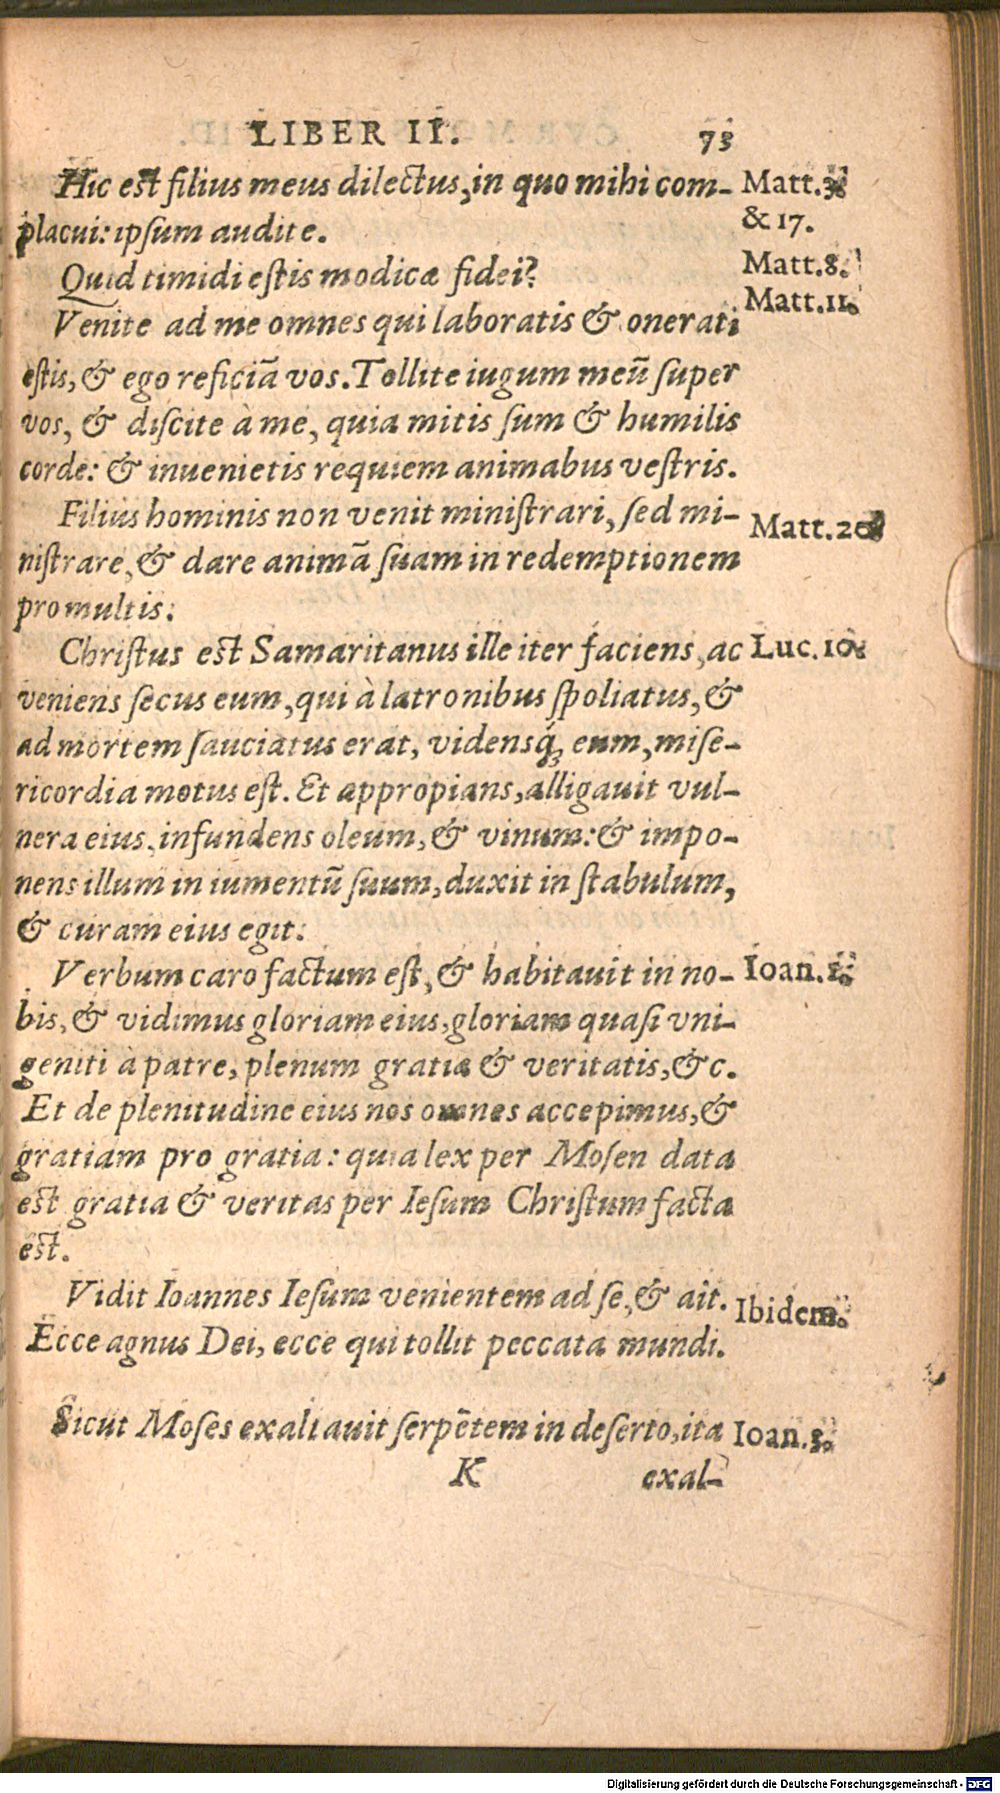 LIBER II. 73
Hic est filius meus dilectus, in quo mihi com- Matt.3.
placui: ipsum audite. & 17.
Quid timidi estis modicæ fidei? Matt.8.
Matt.11.
Venite ad me omnes qui laboratis & onerati
estis, & ego reficiā vos. Tollite iugum meū super
vos, & discite à me, quia mitis sum & humilis
corde: & inuenietis requiem animabus vestris.
Filius hominis non venit ministrari, sed mi- Matt.20.
nistrare, & dare animā suam in redemptionem
pro multis.
Christus est Samaritanus ille iter faciens, ac Luc.10.
veniens secus eum, qui à latronibus spoliatus, &
ad mortem sauciatus erat, vidensq́; eum, mise-
ricordia motus est. Et appropians, alligauit vul-
nera eius, infundens oleum, & vinum: & impo-
nens illum in iumentū suum, duxit in stabulum,
& curam eius egit.
Verbum caro factum est, & habitauit in no- Ioan.1.
bis, & vidimus gloriam eius, gloriam quasi vni-
geniti à patre, plenum gratiæ & veritatis, &c.
Et de plenitudine eius nos omnes accepimus, &
gratiam pro gratia: quia lex per Mosen data
est gratia & veritas per Iesum Christum facta
est.
Vidit Ioannes Iesum venientem ad se, & ait. Ibidem.
Ecce agnus Dei, ecce qui tollit peccata mundi.
Sicut Moses exaltauit serpētem in deserto, ita Ioan.3.
K exal-
Digitalisierung gefördert durch die Deutsche Forschungsgemeinschaft - DFG